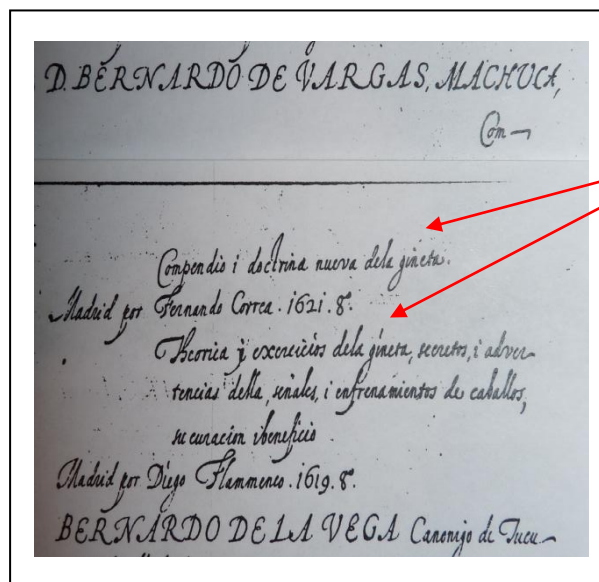 D. BERNARDO DE VARGAS, MACHUCA,
Com
Compendio i doctrina nueva dela gineta.
Madrid por Fernando Correa. 1621. 8º.
Theorica y exercicios dela gineta, secretos, i adver-
tencias della, señales, i enfrenamientos de caballos,
su curacion i beneficio.
Madrid por Diego Flammenco. 1619. 8º.
BERNARDO DE LA VEGA Canonigo de Tucu-